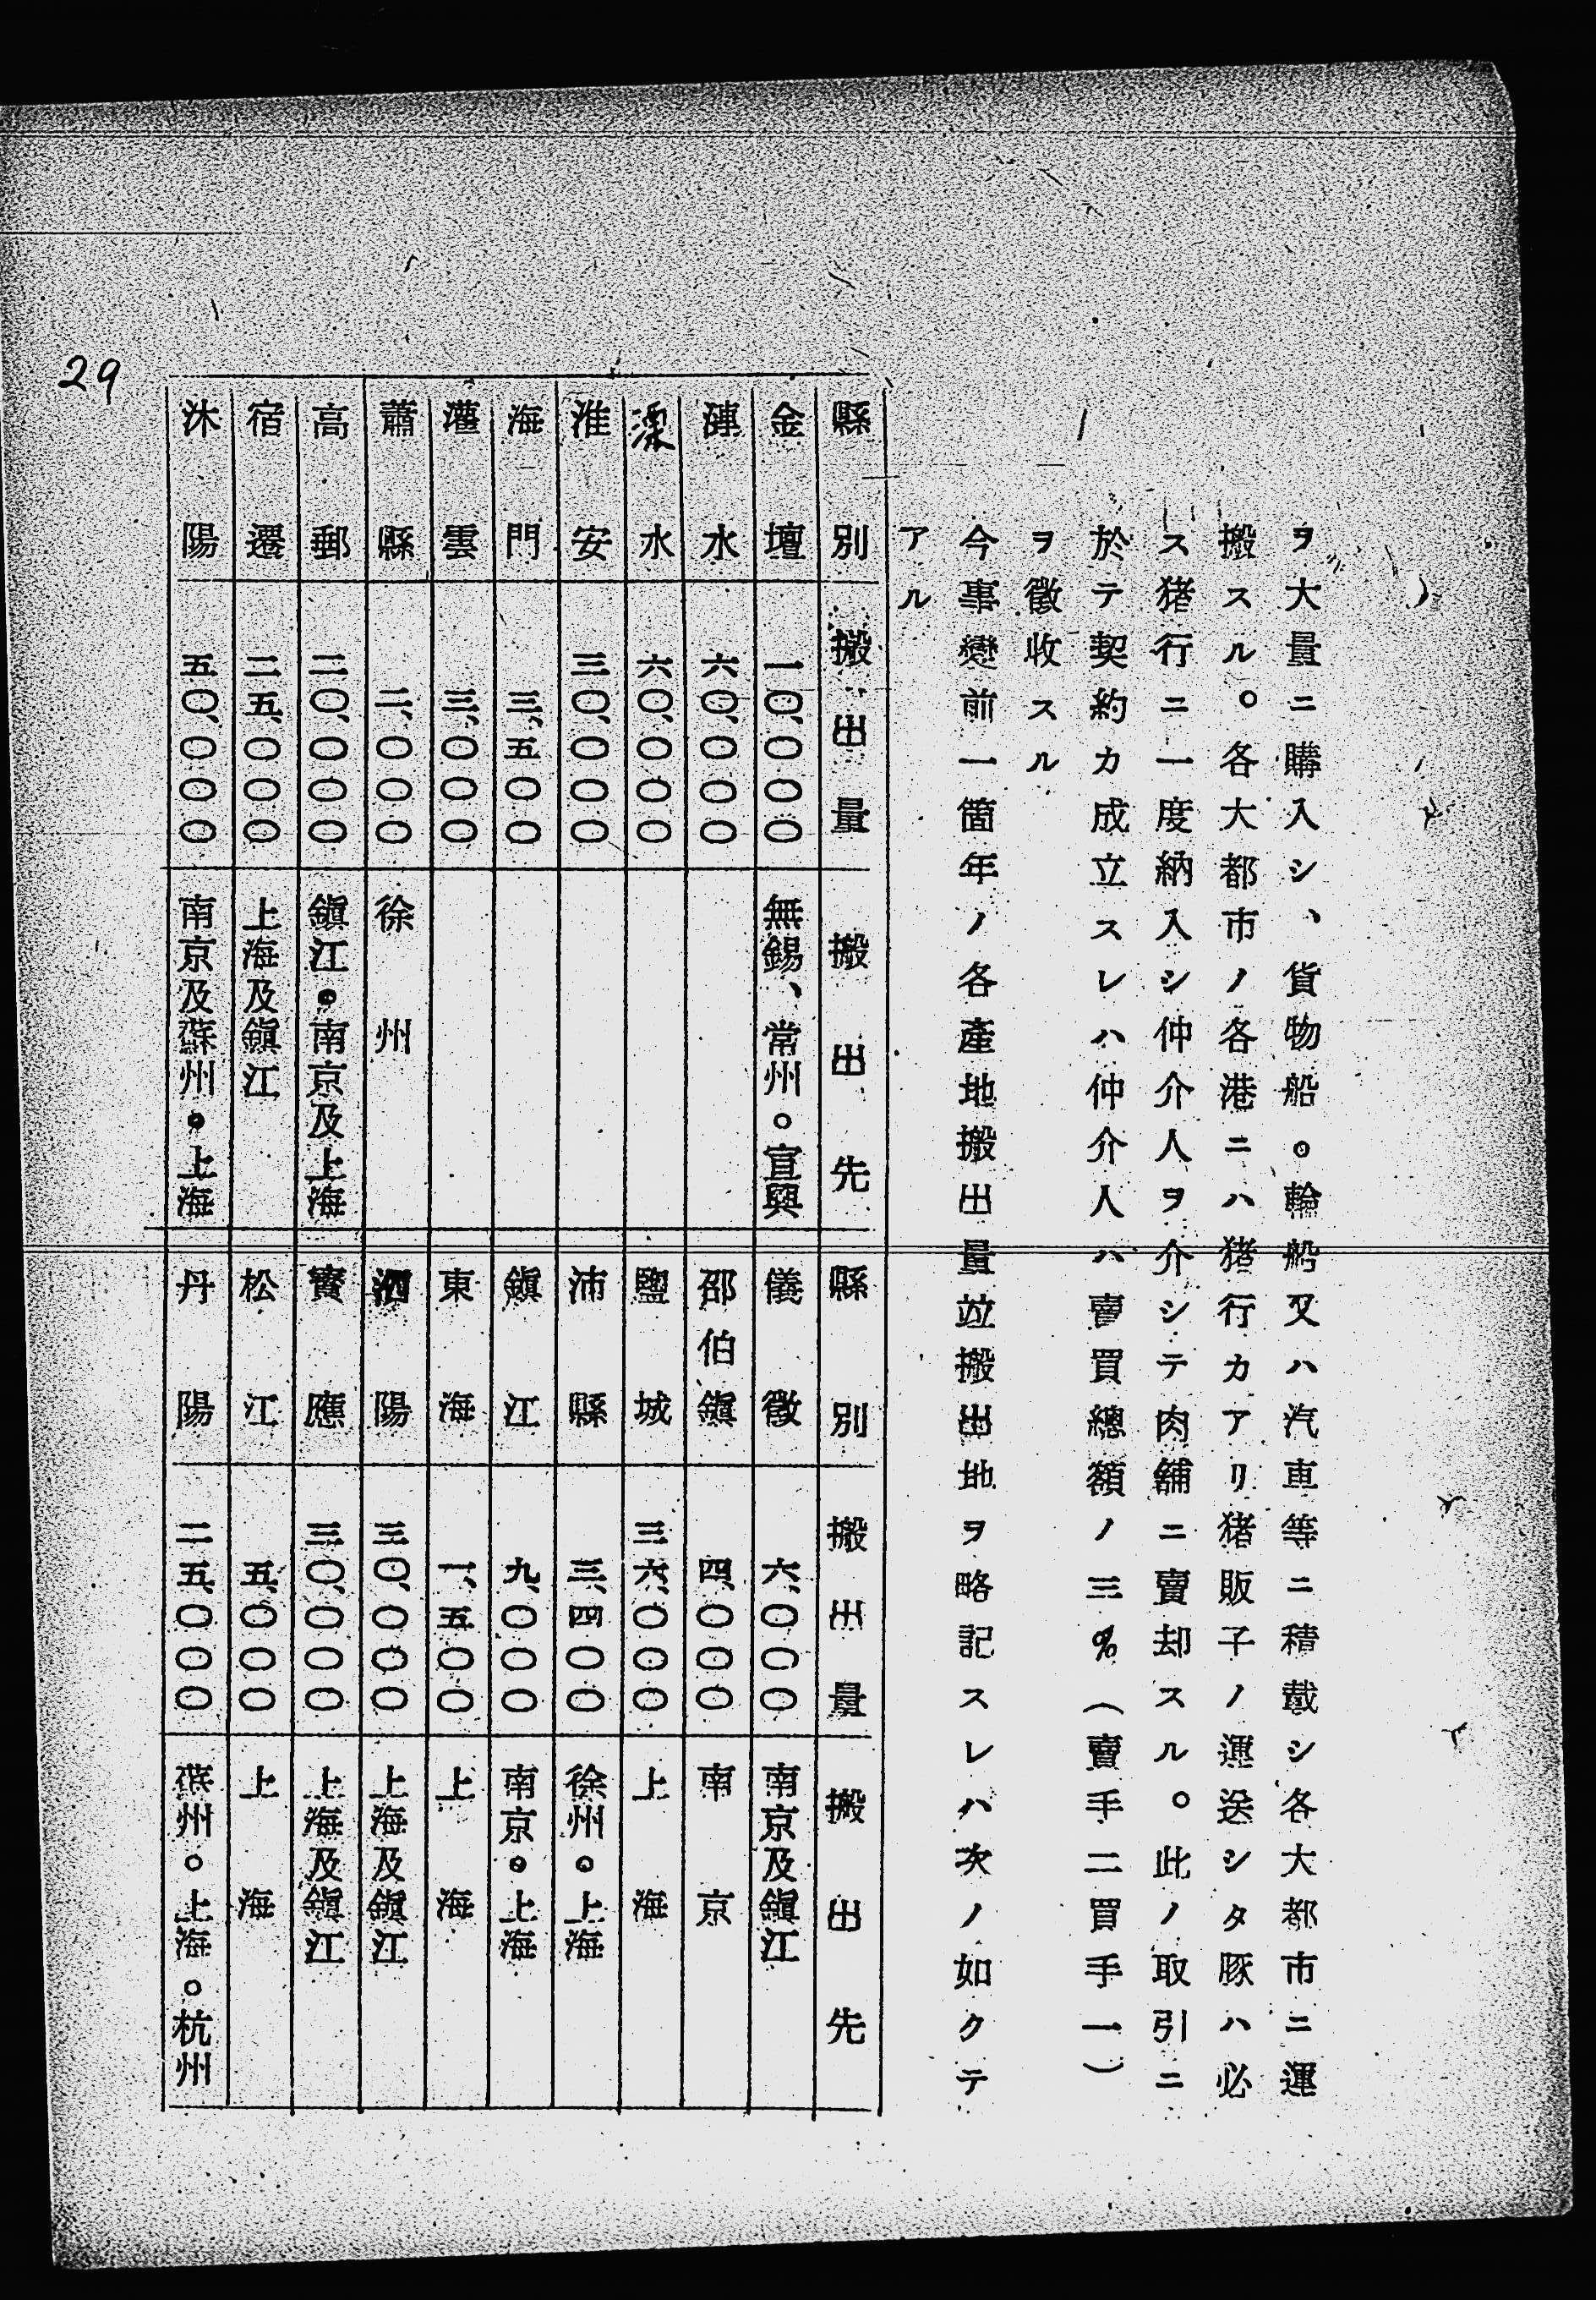 ヲ大量ニ購入シ、貨物船。輪船又ハ汽車等ニ積載シ各大都市ニ運
搬スル。各大都市ノ各港ニハ猪行カアリ猪販子ノ運送シタ豚ハ必
ス猪行ニ一度納入シ仲介人ヲ介シテ肉舖ニ賣却スル。此ノ取引ニ
於テ契約カ成立スレハ仲介人ハ賣買總額ノ三%(賣手二買手一)
ヲ徵收スル
今事變前一箇年ノ各產地搬出量竝搬出地ヲ略記スレハ次ノ如クテ
アル
縣別 搬出量 搬出先
金壇 一〇、〇〇〇 無錫、常州。宣興
漣水 六〇、〇〇〇
溧水 六〇、〇〇〇
淮安 三〇、〇〇〇
海門 三、五〇〇
灌雲 三、〇〇〇
蕭縣 二、〇〇〇 徐州
高郵 二〇、〇〇〇 鎭江。南京及上海
宿遷 二五、〇〇〇 上海及鎭江
沐陽 五〇、〇〇〇 南京及蘇州。上海
縣別 搬出量 搬出先
儀徵 六、〇〇〇 南京及鎭江
邵伯鎭 四、〇〇〇 南京
鹽城 三六、〇〇〇 上海
沛縣 三、四〇〇 徐州。上海
鎭江 九、〇〇〇 南京。上海
東海 一、五〇〇 上海
泗陽 三〇、〇〇〇 上海及鎭江
寶應 三〇、〇〇〇 上海及鎭江
松江 五、〇〇〇 上海
丹陽 二五、〇〇〇 蘇州。上海。杭州
29